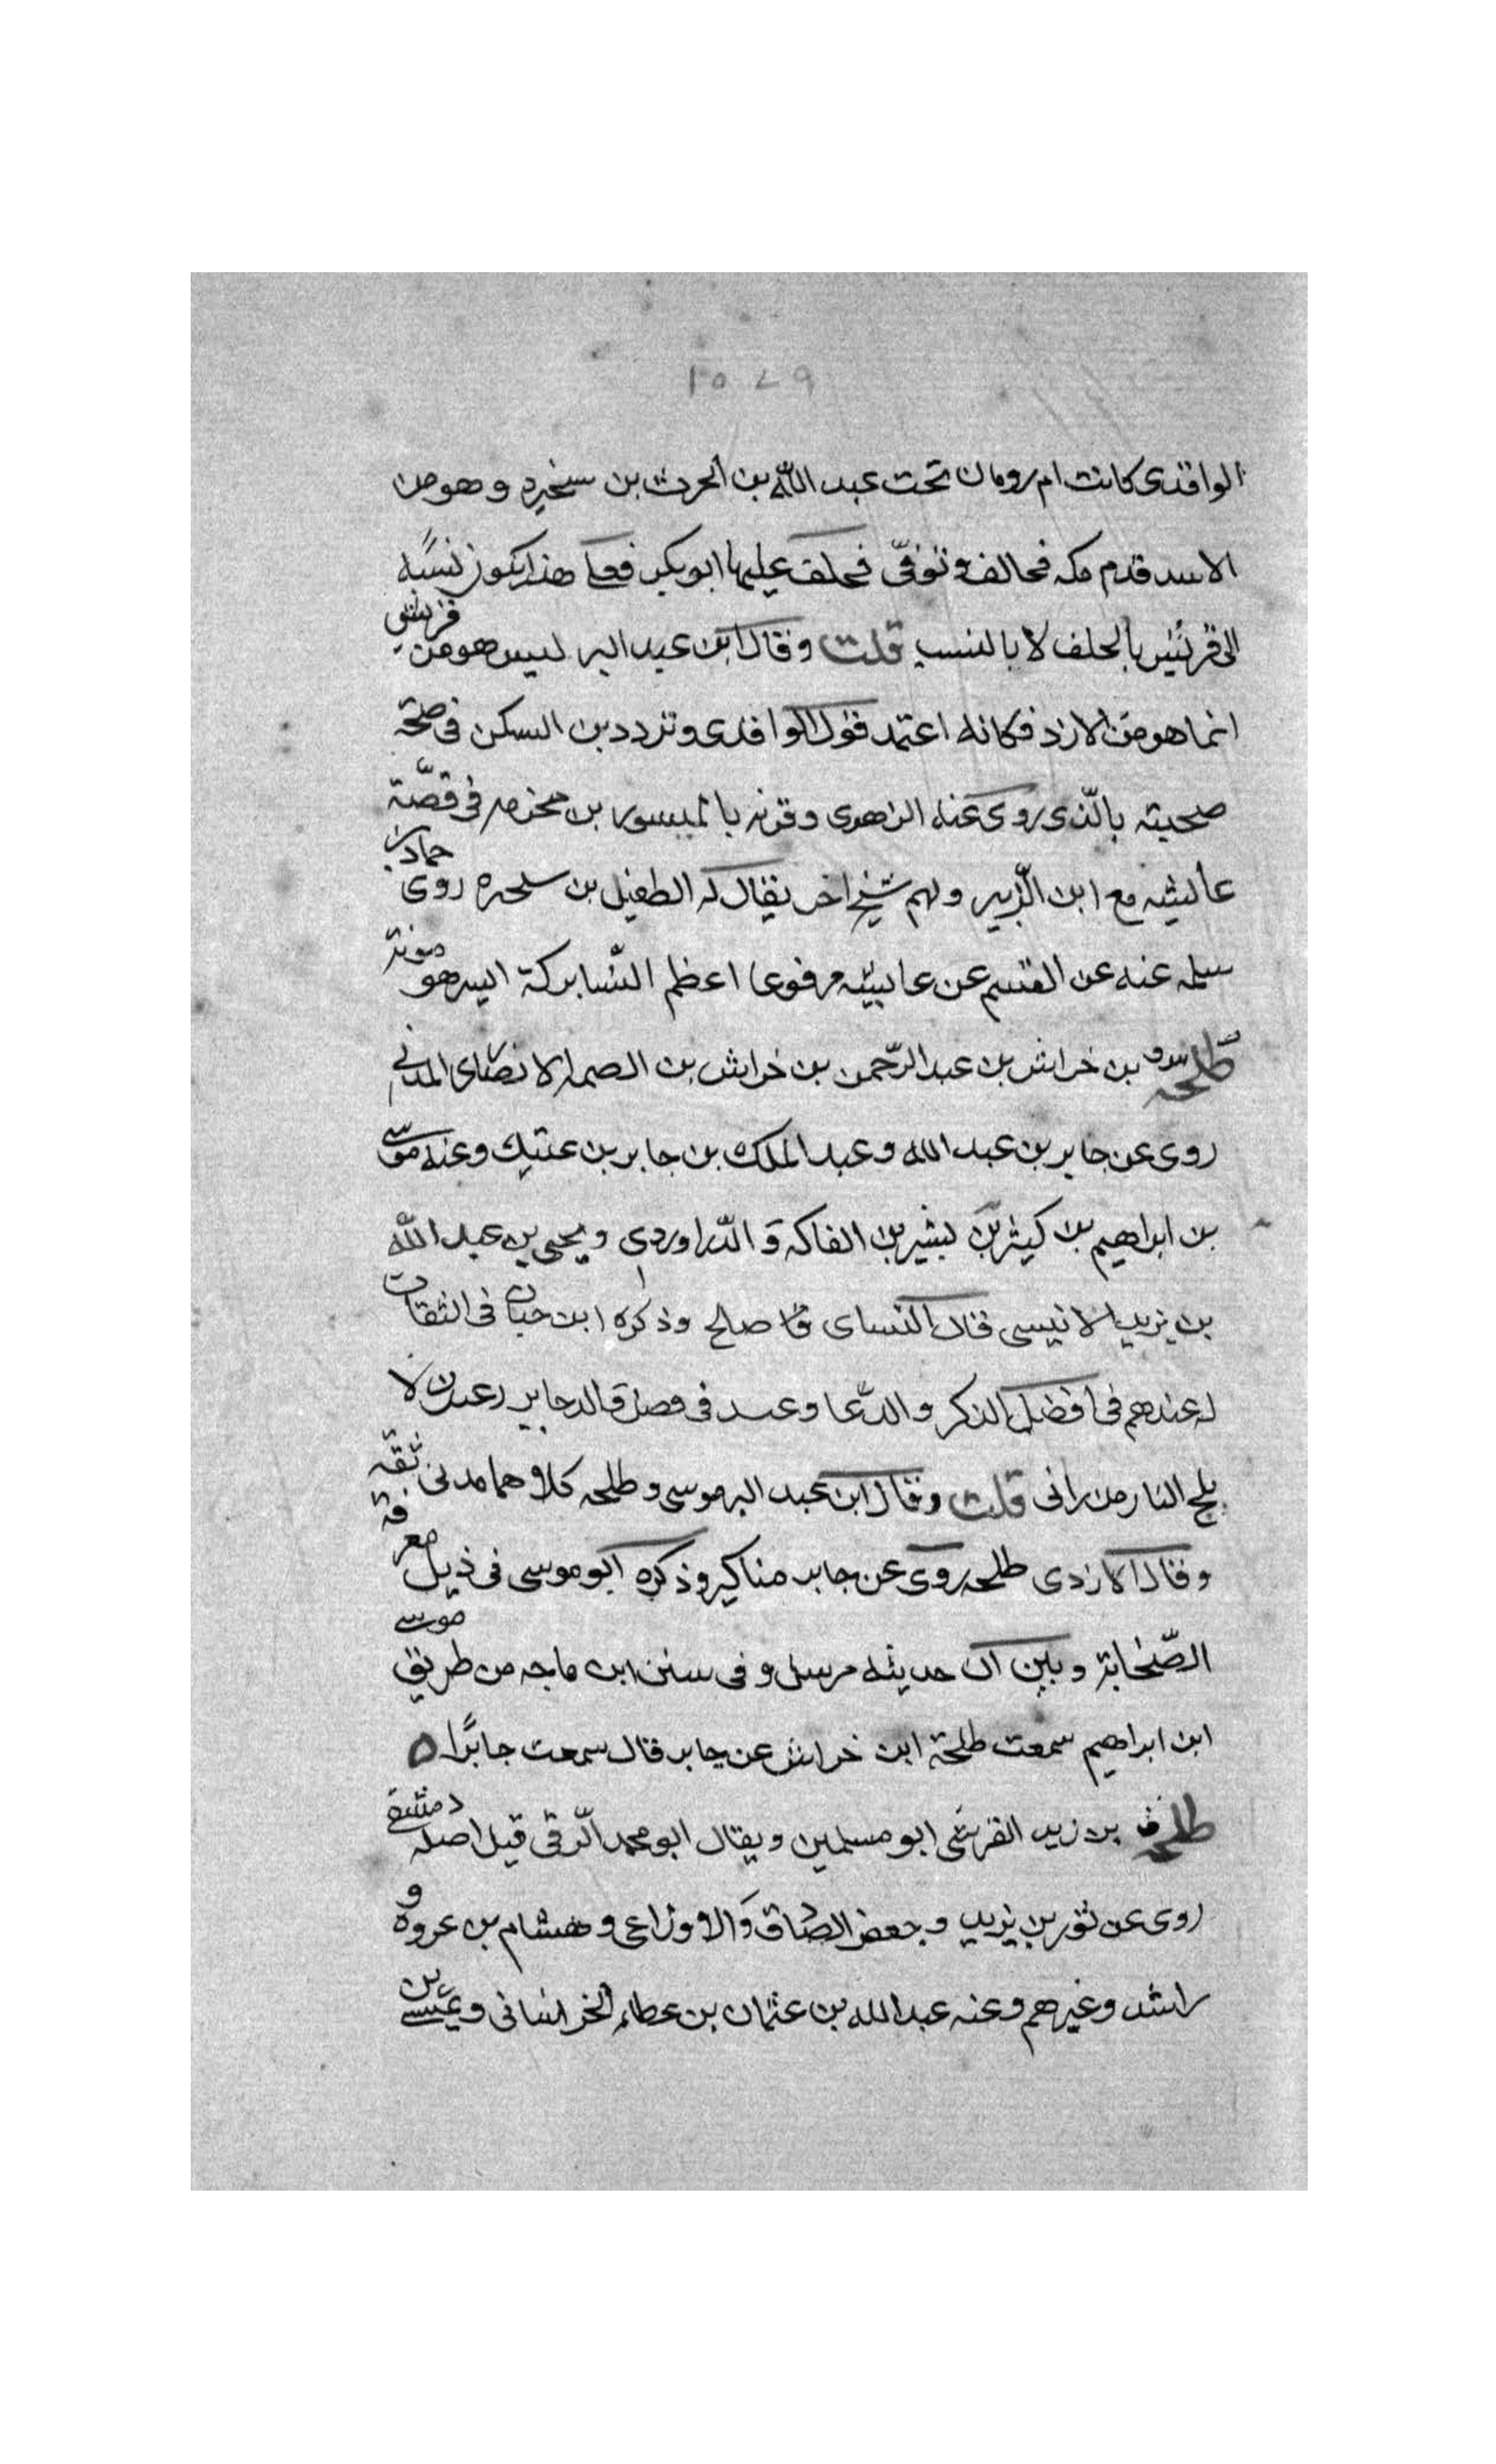 ١٥٧٩
الواقدى كانت ام رومان تحت عبد الله بن الحرث بن سخبره وهو من
الاسد قدم مكه فحالف وتوفّى فخلف عليها ابو بكر فعلى هذا يكون نسبه
الى قريش بالحلف لا بالنسب قلت وقال ابن عبد البر ليس هو من قريش
انما هو من الازد فكانه اعتمد قول الواقدى وتردد بن السكن فى صحة
صحبته بالّذى روى عنه الزهرى وقرنه بالمسور بن مخرمه فى قصّة
عايشه مع ابن الزّبير ولهم شيخ اخر يقال له الطفيل بن سخبره روى حماد بن
سلمه عنه عن القسم عن عايشه مرفوعا اعظم النّسا بركة ايسرهن مونة
طلحه بن خراش بن عبد الرّحمن بن خراش بن الصمه الانصارى المدنى
روى عن جابر بن عبد الله وعبد الملك بن جابر بن عتيك وعنه موسى
بن ابراهيم بن كثير بن بشير بن الفاكه والدّراوردى ويحيى بن عبد الله
بن يزيد الانيسى قال النساى صالح وذكره ابن حبان فى الثقات
له عندهم فى افضل الذكر والدّعا وعند فى فضل والد جابر لا
يلج النار من رانى قلت وقال ابن عبد البر موسى وطلحه كلاهما مدنى ثقه
وقال الازدى طلحه روى عن جابر مناكير وذكره ابو موسى فى ذيل معرفة
الصّحابة وبين ان حديثه مرسل وفى سنن ابن ماجه من طريق موسى
ابن ابراهيم سمعت طلحة ابن خراش عن جابر قال سمعت جابرًا ه
طلحه ق بن زيد القرشى ابو مسلمين ويقال ابو محمد الرّقى قيل اصله دمشقى
روى عن ثور بن يزيد وجعفر الصّادق والاوزاعى وهشام بن عروه و
راشد وغيرهم وعنه عبد الله بن عثمان بن عطاء الخراسانى وعيسى بن